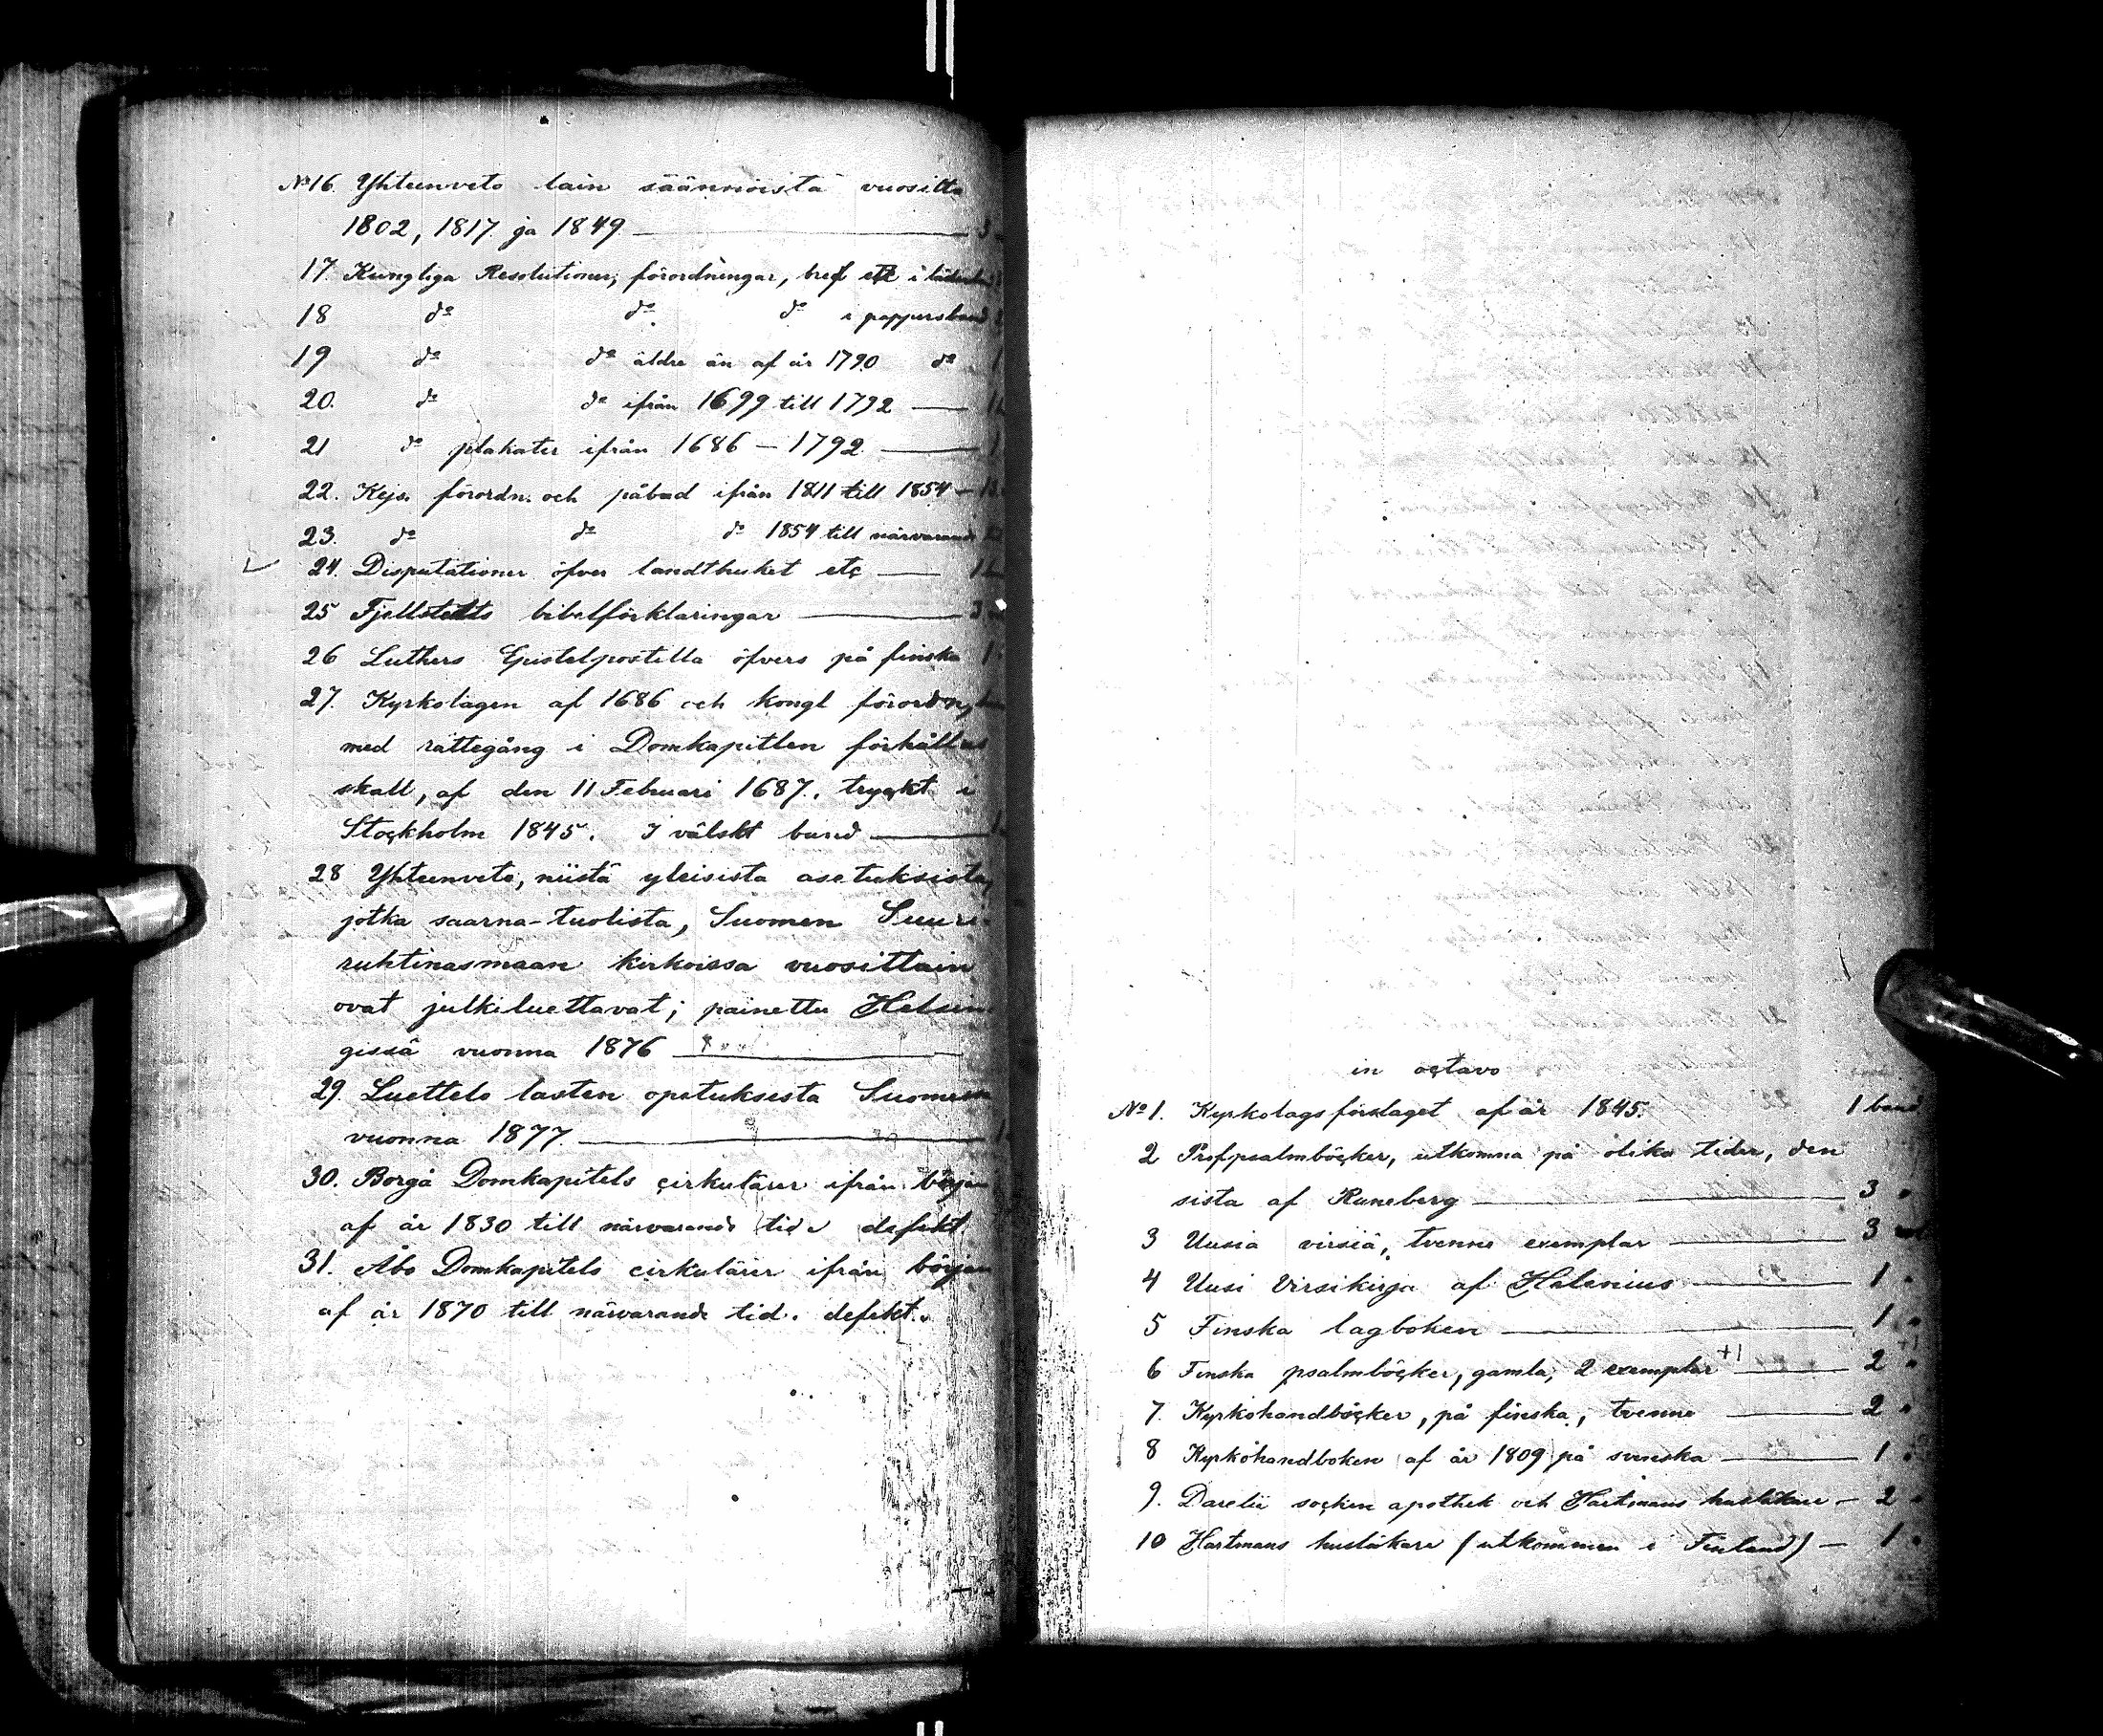 No 16. Yhteenveto lain säännöistä vuosilta
1802, 1817 ja 1849 — 3
17. Kungliga Resolutioner, förordningar, bref etc i
18 do do do i pappersband
19 do do äldre än af år 1790 do 1
20. do do ifrån 1699 till 1792 —
21 do plakater ifrån 1686 – 1792 — 1
22. Kejs. förordn. och påbud ifrån 1811 till 1854 —
23. do do do 1854 till närvarande
24. Disputationer öfver landthusket etc — 1
25 Fjellstedts bibelförklaringar — 3
26 Luthers Epistelpostilla öfvers på finska 1
27. Kyrkolagen af 1686 och kongl förordng
med rättegång i Domkapitlen förhållas
skall, af den 11 Februari 1687. tryckt i
Stockholm 1845. I välskt band — 1
28 Yhteenveto, niistä yleisista asetuksista,
jotka saarna-tuolista, Suomen Suuri-
ruhtinasmaan kirkoissa vuosittain
ovat julkiluettavat; painettu Helsin
gissä vuonna 1876 —
29. Luettelo lasten opetuksesta Suomessa
vuonna 1877 — 1
30. Borgå Domkapitels cirkulärer ifrån början
af år 1830 till närvarande tid defekt
31. Åbo Domkapitels cirkulärer ifrån början
af år 1870 till närvarande tid. defekt.
in octavo
No 1. Kyrkolagsförslaget af år 1845. 1 band
2 Profpsalmböcker, utkomna på olika tider, den
sista af Runeberg — 3 "
3 Uusia virsiä, tvenne exemplar — 3
4 Uusi Virsikirja af Halenius — 1 "
5 Finska lagboken — 1 "
6 Finska psalmböcker, gamla, 2 exemplar +1 — 2 " +1
7. Kyrkohandböcker, på finska, tvenne — 2 "
8 Kyrkohandboken af år 1809 på svenska — 1 "
9. Darelii socken apothek och Hartmans husläkare — 2 "
10 Hartmans husläkare (utkommen i Finland) — 1 "